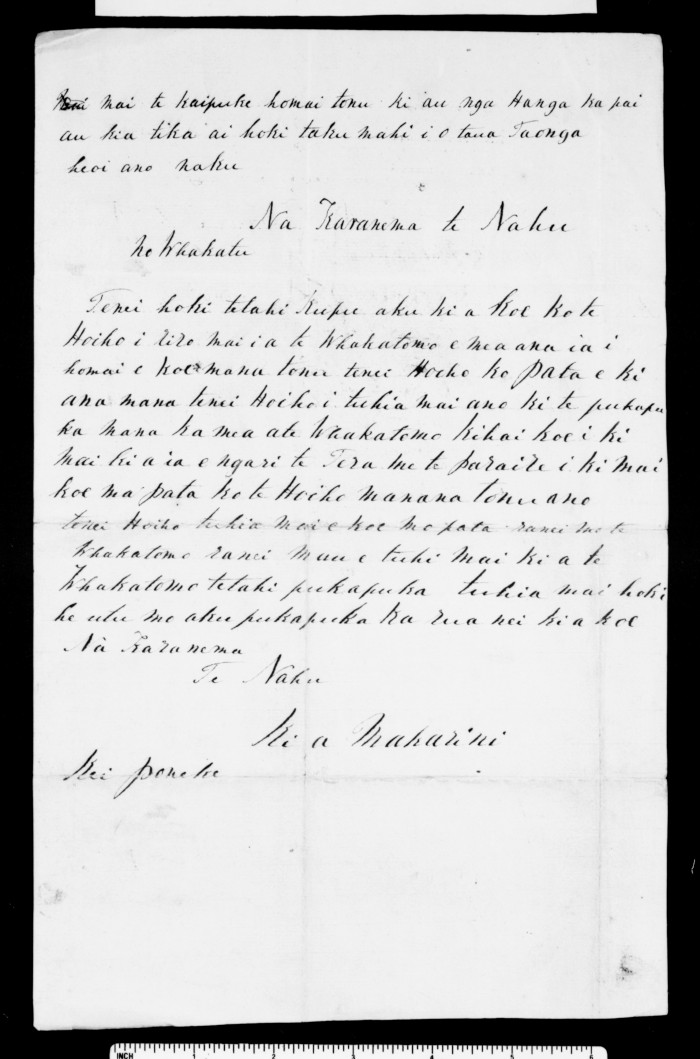 mai te kaipuke homai tonu ki au nga Hanga ka pai
au kia tika ai hoki taku mahi i o taua Taonga
heoi ano naku
Na Karanema te Nahu
No Whakatu
Tenei hoki tetahi kupu aku ki a koe ko te
Hoiho i riro mai i a te Whakatomo e mea ana ia i
homai e koe mana tonu tenei Hoiho ko pata e ki
ana mana tenei Hoiho i tuhia mai ano ki te pukapu
ka mana ka mea a te Whakatomo kihai koe i ki
mai ki a ia e ngari te Tera me te paraire i ki mai
koe ma pata ko te Hoiho manana tonu ano
tenei Hoiho tuhia mai e koe mo pata ranei mo te
Whakatomo ranei mau e tuhi mai ki a te
Whakatomo tetahi pukapuka tuhia mai hoki
he utu mo aku pukapuka ka rua nei ki a koe
Na Karanema
Te Nahu
Ki a Makarini
Kei poneke
INCH 1 2 3 4 5 6